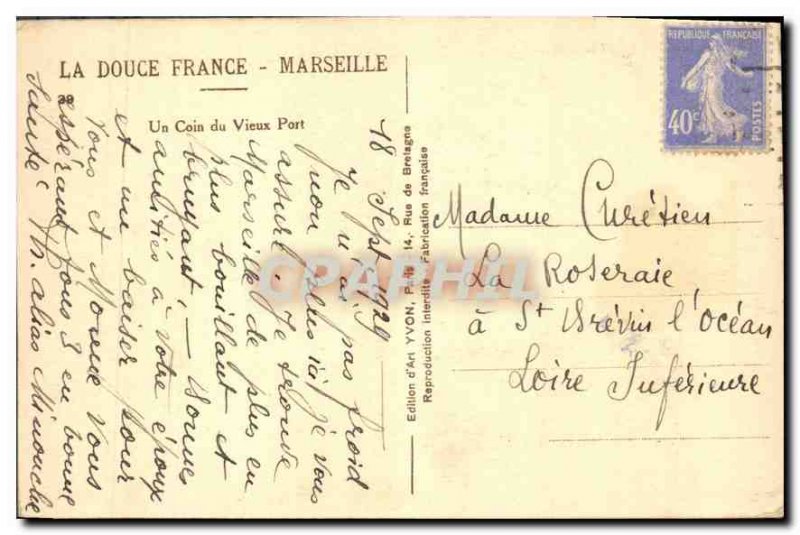 LA DOUCE FRANCE - MARSEILLE
39
Un Coin du Vieux Port
18 Sept 1929
Je n'ai pas froid
non plus ici je vous
assure. Je trouve
Marseille de plus en
plus bouillant et
bruyant. — Bonnes
amitiés à votre époux
et un baiser pour
vous et Moune. Vous
espérant tous 3 en bonne
santé. Th. alias Minouche
Edition d'Art YVON, Paris 14, Rue de Bretagne
Reproduction interdite Fabrication française
REPUBLIQUE FRANÇAISE
40c
POSTES
Madame Chrétien
La Roseraie
à St Brévin l'Océan
Loire Inférieure
CPAPHIL